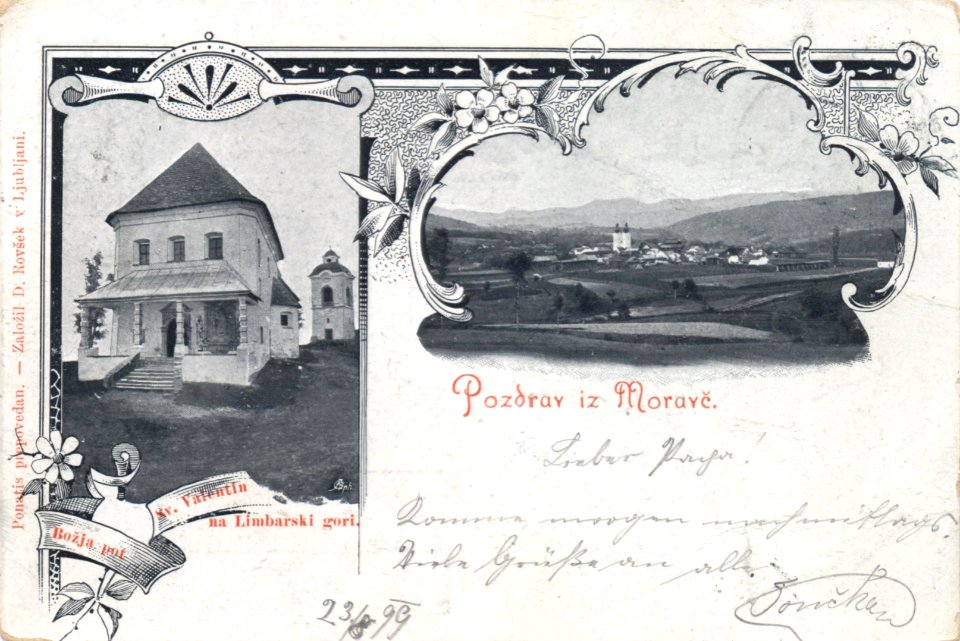 Ponatis prepovedan. — Založil D. Rovšek v Ljubljani.
Božja pot
Sv. Valentin
na Limbarski gori.
Pozdrav iz Moravč.
Lieber Papa!
Komme morgen nachmittags.
Viele Grüße an alle.
23/8 99